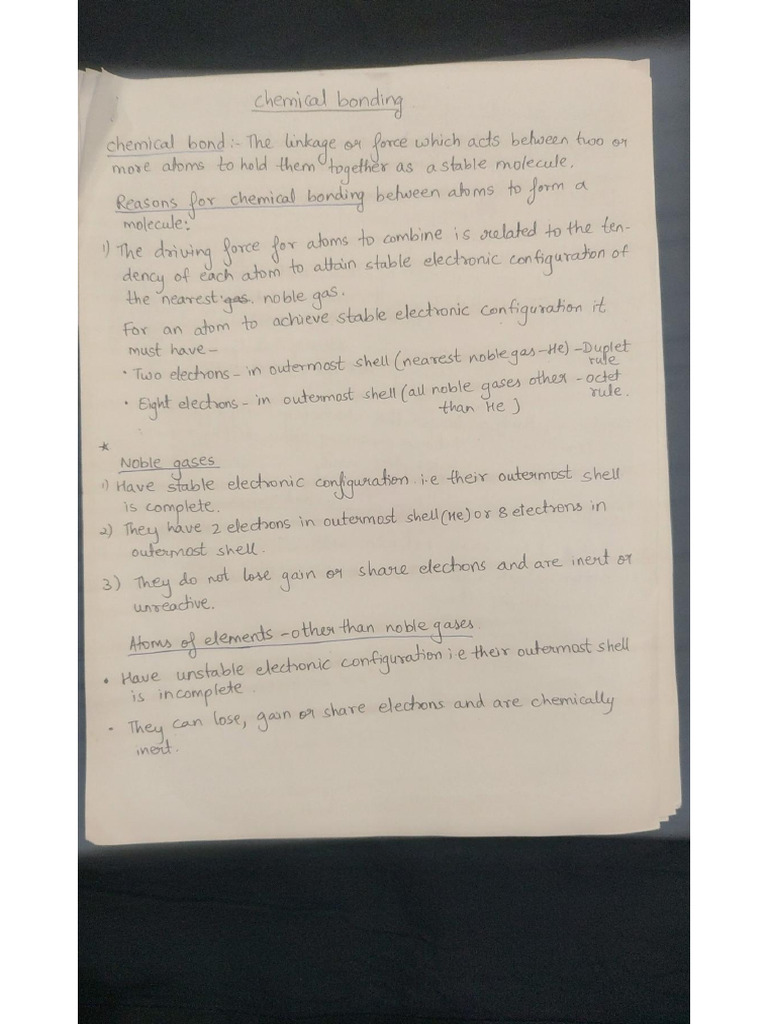 Chemical bonding
Chemical bond:- The linkage or force which acts between two or
more atoms to hold them together as a stable molecule.
Reasons for chemical bonding between atoms to form a
molecule:
1) The driving force for atoms to combine is related to the ten-
dency of each atom to attain stable electronic configuration of
the nearest gas noble gas.
For an atom to achieve stable electronic configuration it
must have –
• Two electrons – in outermost shell (nearest noble gas – He) – Duplet
rule
• Eight electrons – in outermost shell (all noble gases other – octet
than He) rule.
*
Noble gases
1) Have stable electronic configuration i.e their outermost shell
is complete.
2) They have 2 electrons in outermost shell (He) or 8 electrons in
outermost shell.
3) They do not lose gain or share electrons and are inert or
unreactive.
Atoms of elements – other than noble gases.
• Have unstable electronic configuration i.e their outermost shell
is incomplete.
- They can lose, gain or share electrons and are chemically
inert.